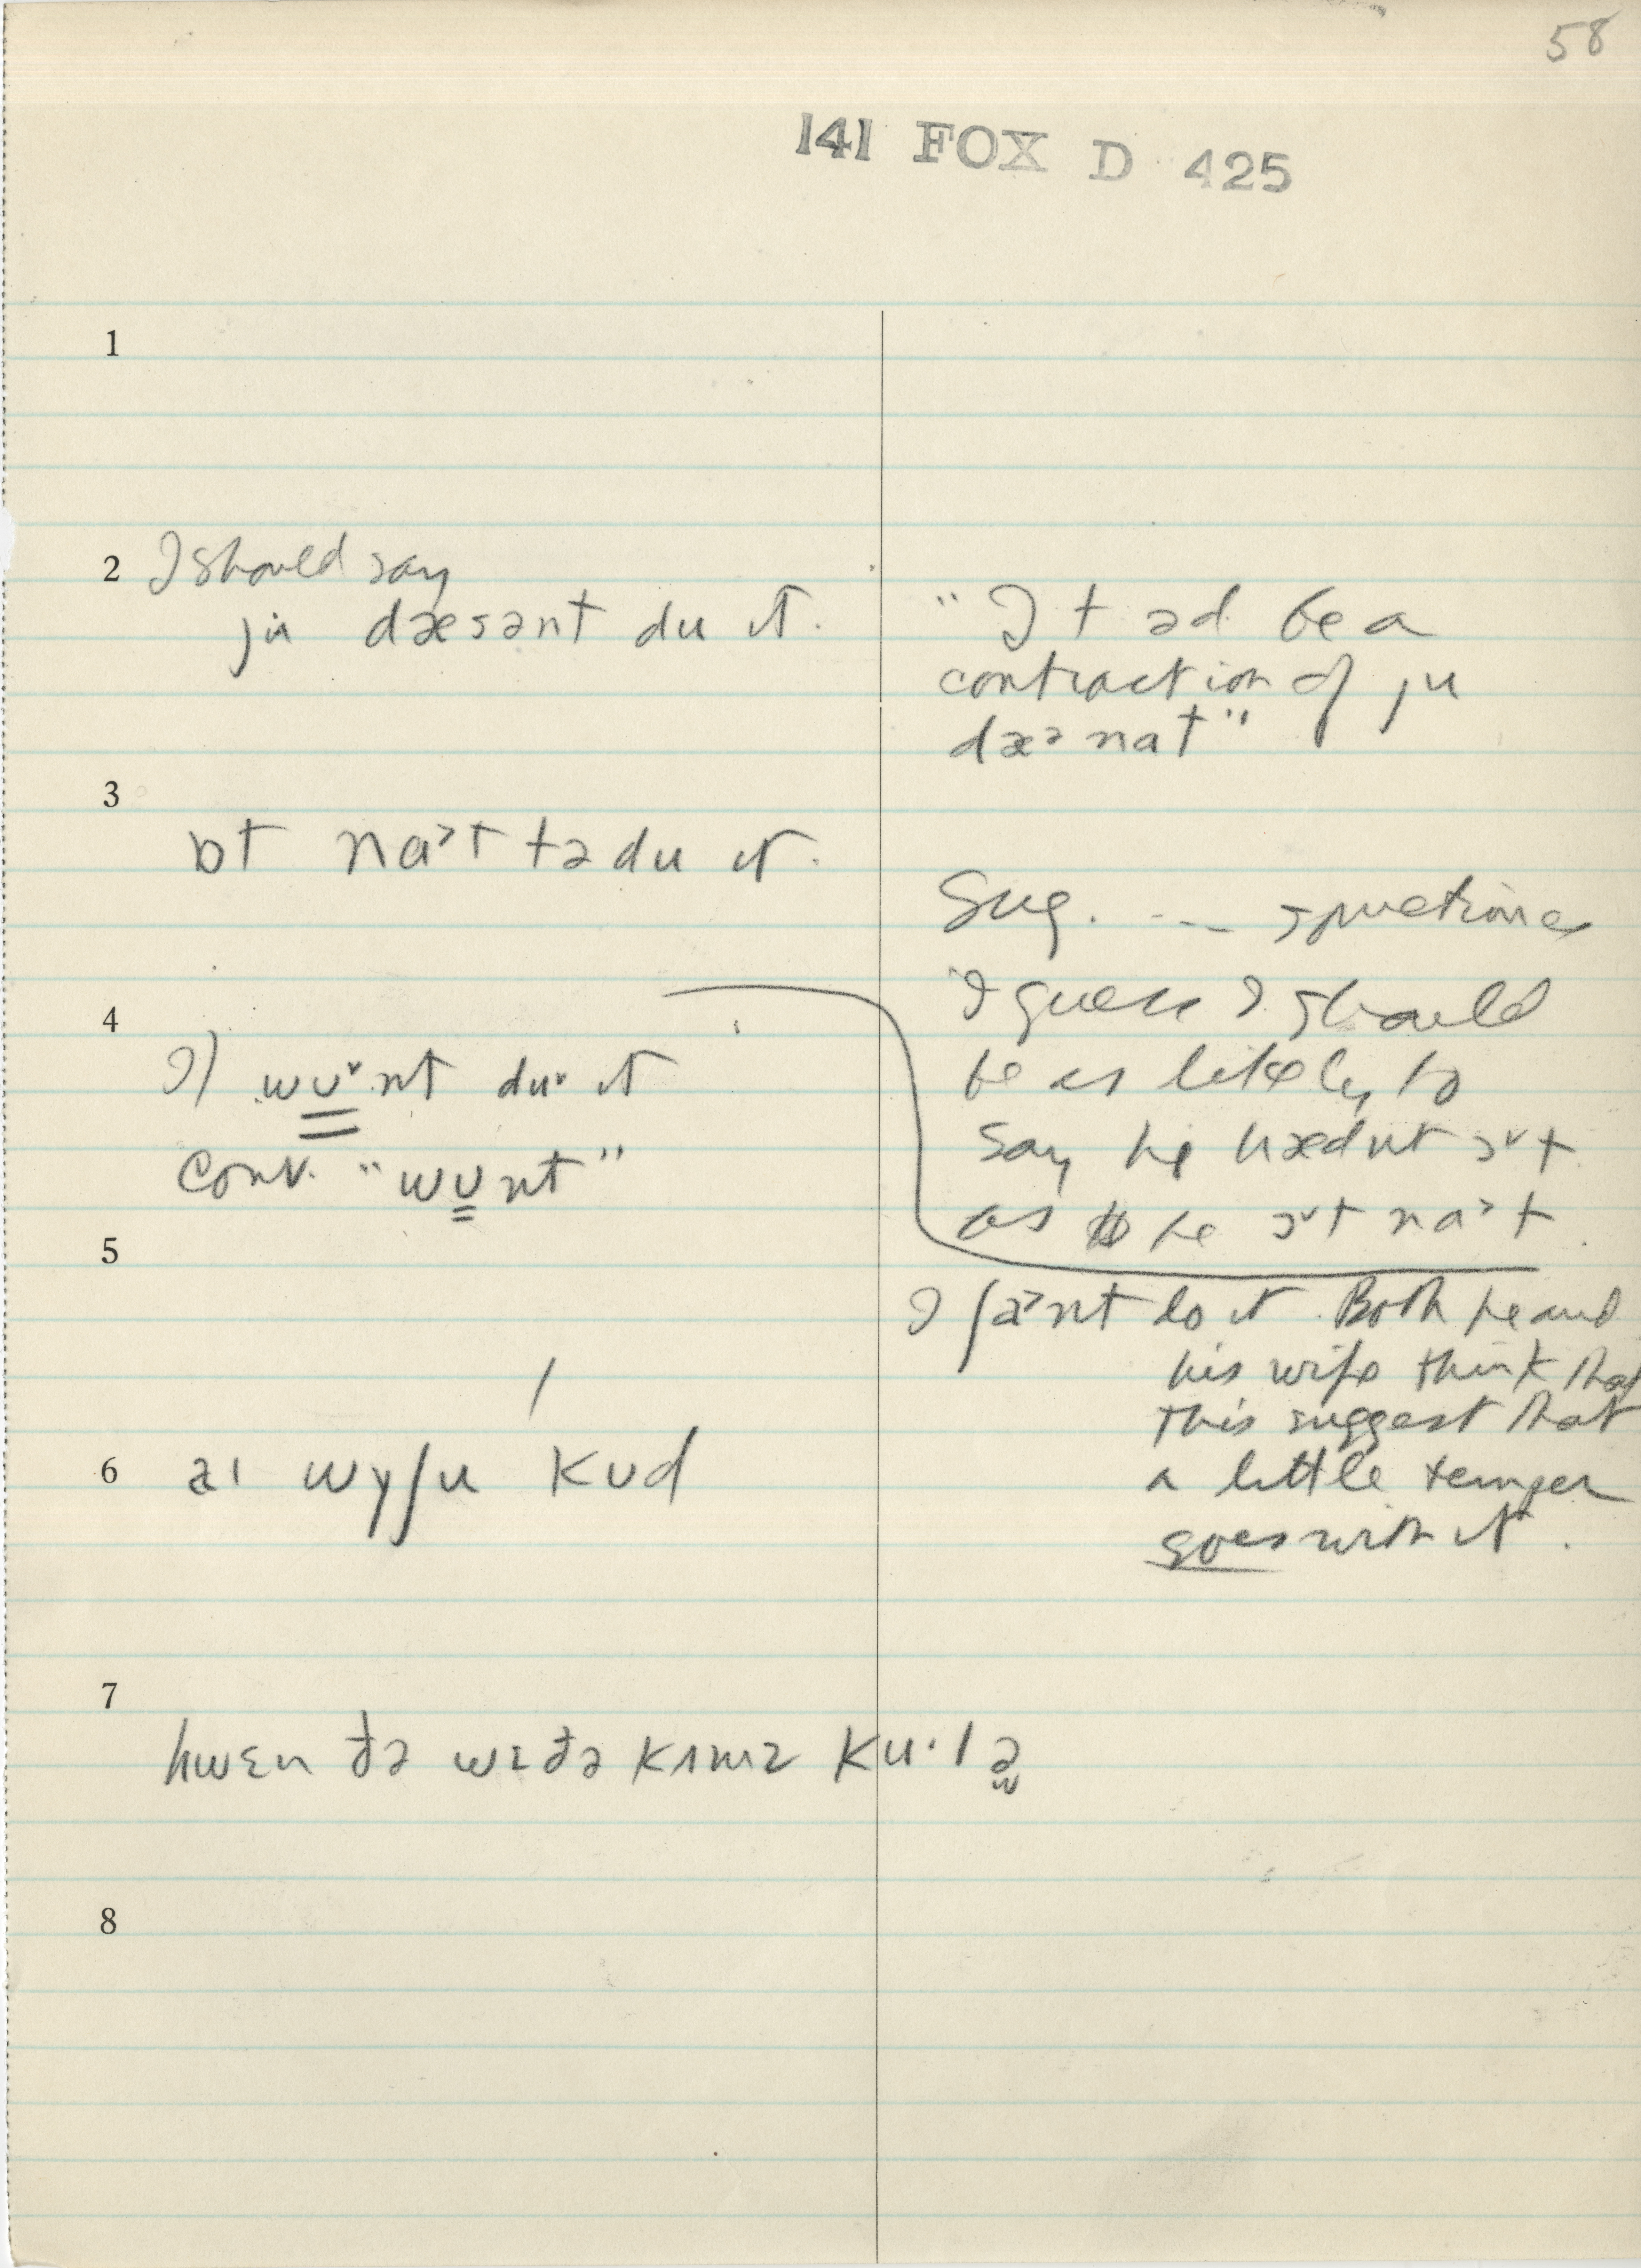 58
141 FOX D 425
1
2 I should say
ju dæsənt du ɪt.
"It əd be a
contraction of ju
dæɚ nat"
3
ɒt na˃t tə du ɪt.
Sug. -- sometimes
I guess I should
be as likely to
say he hædnt ɔ˅t
as he ɔ˅t na˃t.
4
I) wʊ˅nt du˅ ɪt
Conv. "wʊnt"
5
I ʃa˃nt do it. Both he and
his wife think that
this suggest that
a little temper
goes with it.
6 aɪ wɪʃ ju kʊd
7
hwɛn ðə wɛðə kʌmz ku·lə
8